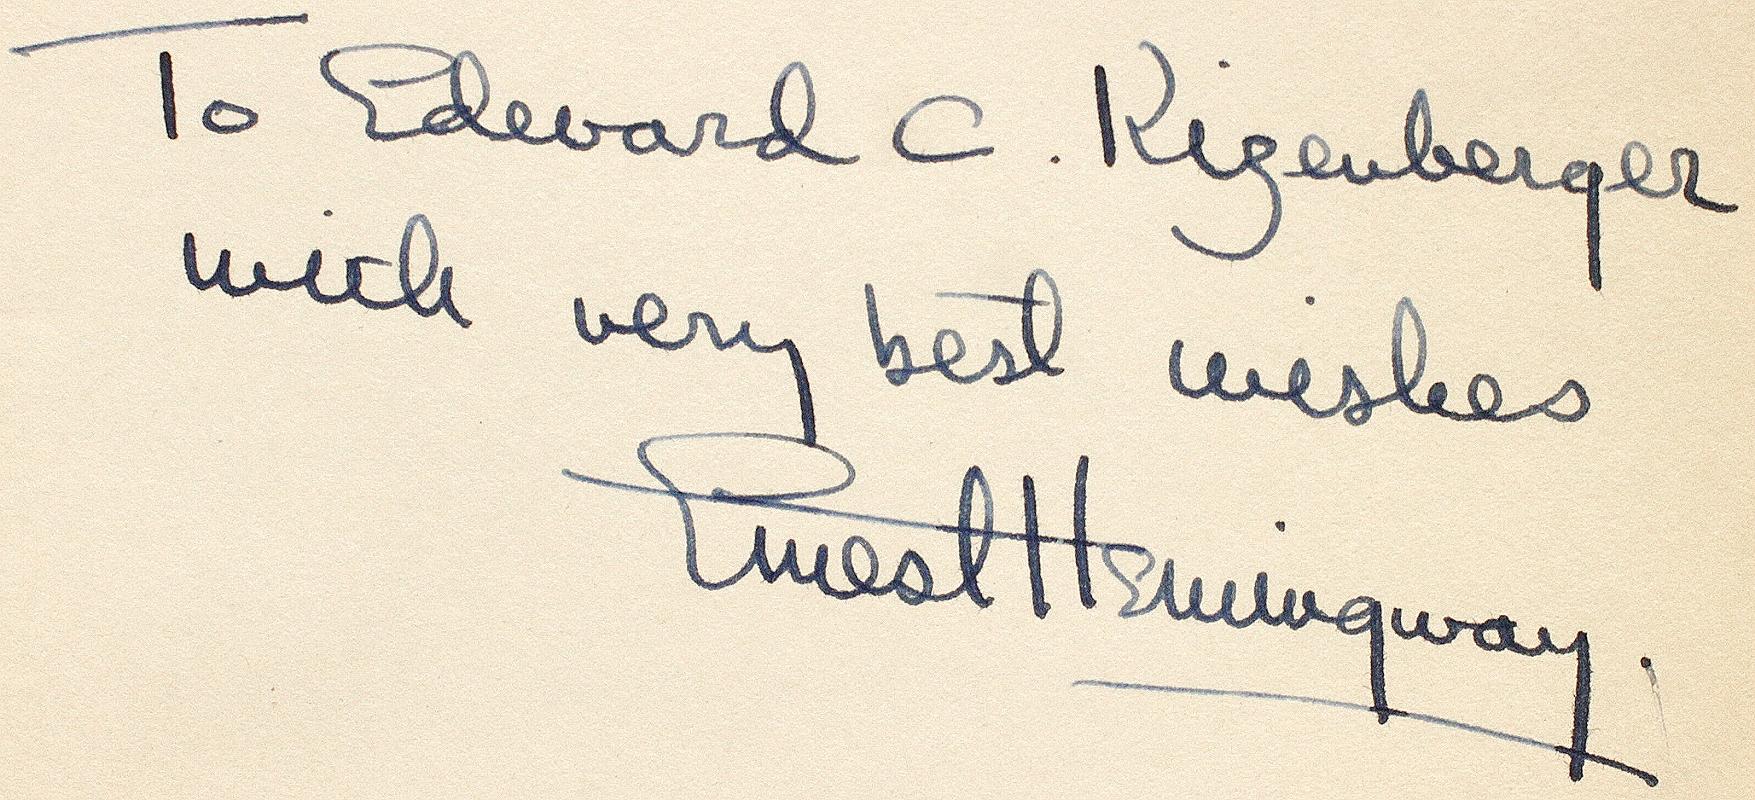 To Edward C. Kizenberger
with very best wishes
Ernest Hemingway.